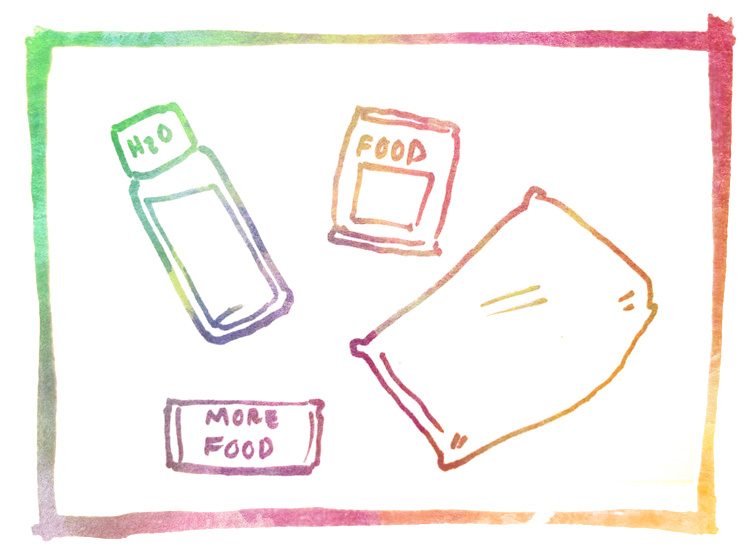 H2O
FOOD
MORE
FOOD